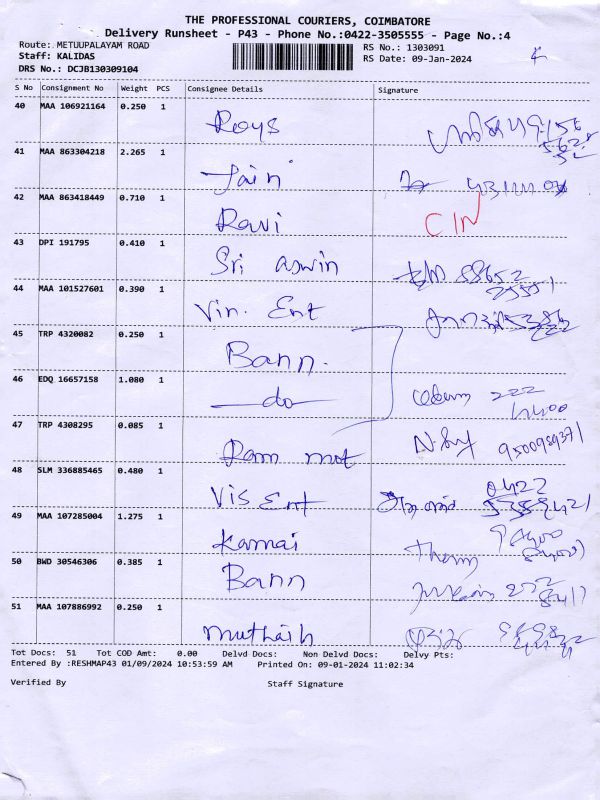 THE PROFESSIONAL COURIERS, COIMBATORE
Delivery Runsheet - P43 - Phone No.:0422-3505555 - Page No.:4
Route: METUUPALAYAM ROAD
RS No.: 1303091
Staff: KALIDAS
RS Date: 09-Jan-2024
DRS No.: DCJB130309104
S No Consignment No Weight PCS Consignee Details Signature
40 MAA 106921164 0.250 1 Roys
41 MAA 863304218 2.265 1 Jain
42 MAA 863418449 0.710 1 Ravi CIN
43 DPI 191795 0.410 1 Sri aswin
44 MAA 101527601 0.390 1 Vin. Ent
45 TRP 4320082 0.250 1 Bann.
46 EDQ 16657158 1.080 1 do
47 TRP 4308295 0.085 1 Ram mot 9500989371
48 SLM 336885465 0.480 1 Vis Ent 0422
49 MAA 107285004 1.275 1 Kamai
50 BWD 30546306 0.385 1 Bann
51 MAA 107886992 0.250 1 muthaih
Tot Docs: 51 Tot COD Amt: 0.00 Delvd Docs: Non Delvd Docs: Delvy Pts:
Entered By :RESHMAP43 01/09/2024 10:53:59 AM Printed On: 09-01-2024 11:02:34
Verified By Staff Signature